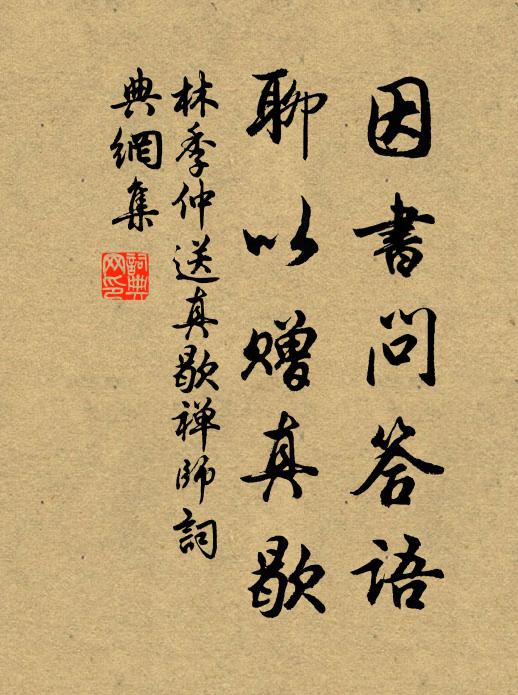 因書問答語
聊以贈真歇
林季仲送真歇禅師詞
典網集
詞典網印